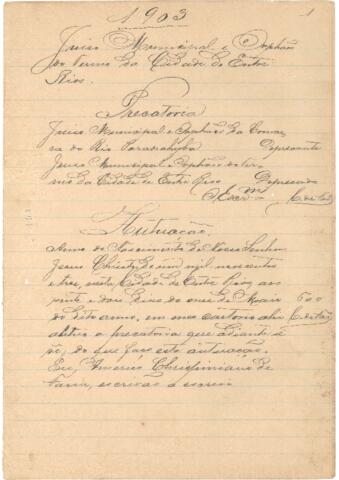 1903
1
Juizo Municipal e Orphãos
do termo da Cidade de Entre
Rios.
Precatoria
Juizo Municipal e Orphãos da Comar
ca do Rio Paranahyba Deprecante
Juizo Municipal e Orphãos do ter
mo da Cidade de Entre Rios Deprecado
Autuação
Anno do Nascimento de Nosso Senhor
Jesus Christo de um mil novecentos
e tres, nesta Cidade de Entre Rios, aos
vinte e dois dias do mez de Março
do dito anno, em meu cartorio
a precatoria que adiante se
vê; do que faço esta autuação.
Eu, Americo
escrivão o escrevi